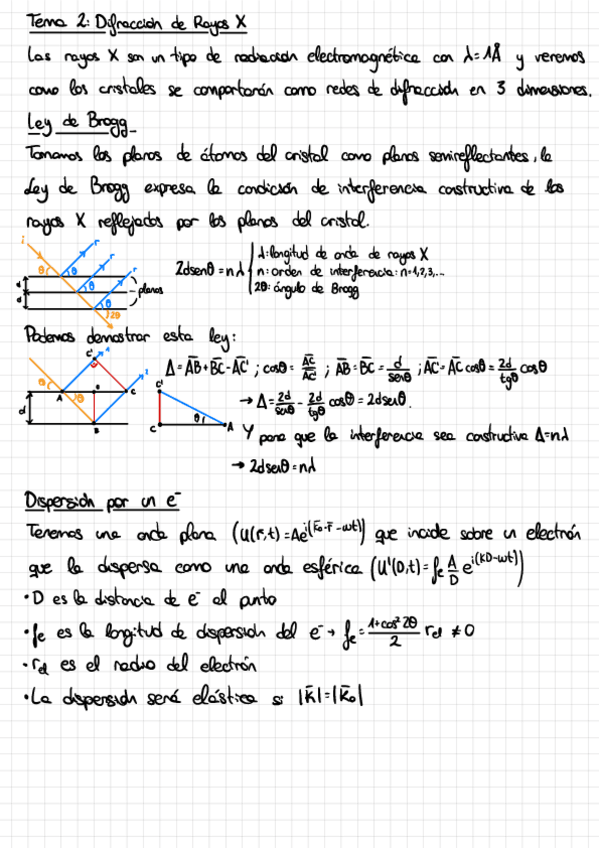 Tema 2: Difracción de Rayos X
Los rayos X son un tipo de radiación electromagnética con λ=1Å y veremos
como los cristales se comportarán como redes de difracción en 3 dimensiones.
Ley de Bragg
Tomamos los planos de átomos del cristal como planos semireflectantes, la
Ley de Bragg expresa la condición de interferencia constructiva de los
rayos X reflejados por los planos del cristal.
i r r r
θ θ θ θ 2θ
d d
planos
2dsenθ = nλ
λ: longitud de onda de rayos X
n: orden de interferencia: n=1,2,3,...
2θ: ángulo de Bragg
Podemos demostrar esta ley:
C' 1 2
θ θ A C B d
C' C A θ
Δ = AB + BC - AC' ; cosθ = AC'/AC ; AB = BC = d/senθ ; AC' = AC cosθ = 2d/tgθ cosθ
→ Δ = 2d/senθ - 2d/tgθ cosθ = 2dsenθ.
Y para que la interferencia sea constructiva Δ=nλ
→ 2dsenθ = nλ
Dispersión por un e⁻
Tenemos una onda plana (u(r,t) = Ae^i(k₀·r - ωt)) que incide sobre un electrón
que la dispersa como una onda esférica (u'(D,t) = fe A/D e^i(kD-ωt))
• D es la distancia de e⁻ al punto
• fe es la longitud de dispersión del e⁻ → fe = 1+cos²2θ/2 rel ≠ 0
• rel es el radio del electrón
• La dispersión será elástica si |k| = |k₀|